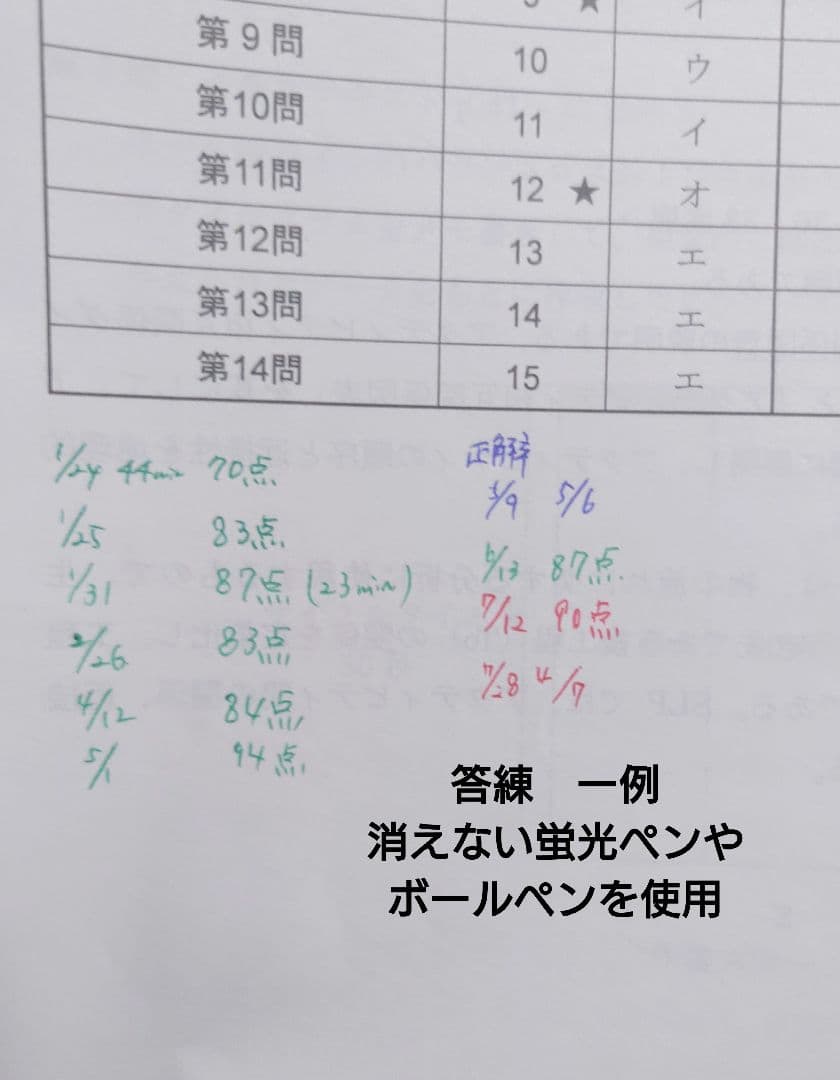 第9問 10 ウ
第10問 11 イ
第11問 12 ★ オ
第12問 13 エ
第13問 14 エ
第14問 15 エ
1/24 44min 70点
1/25 83点
1/31 87点(23min)
2/26 83点
4/12 84点
5/1 94点
正解率
5/9 5/6
6/13 87点
7/12 90点
7/28 4/7
答練 一例
消えない蛍光ペンや
ボールペンを使用